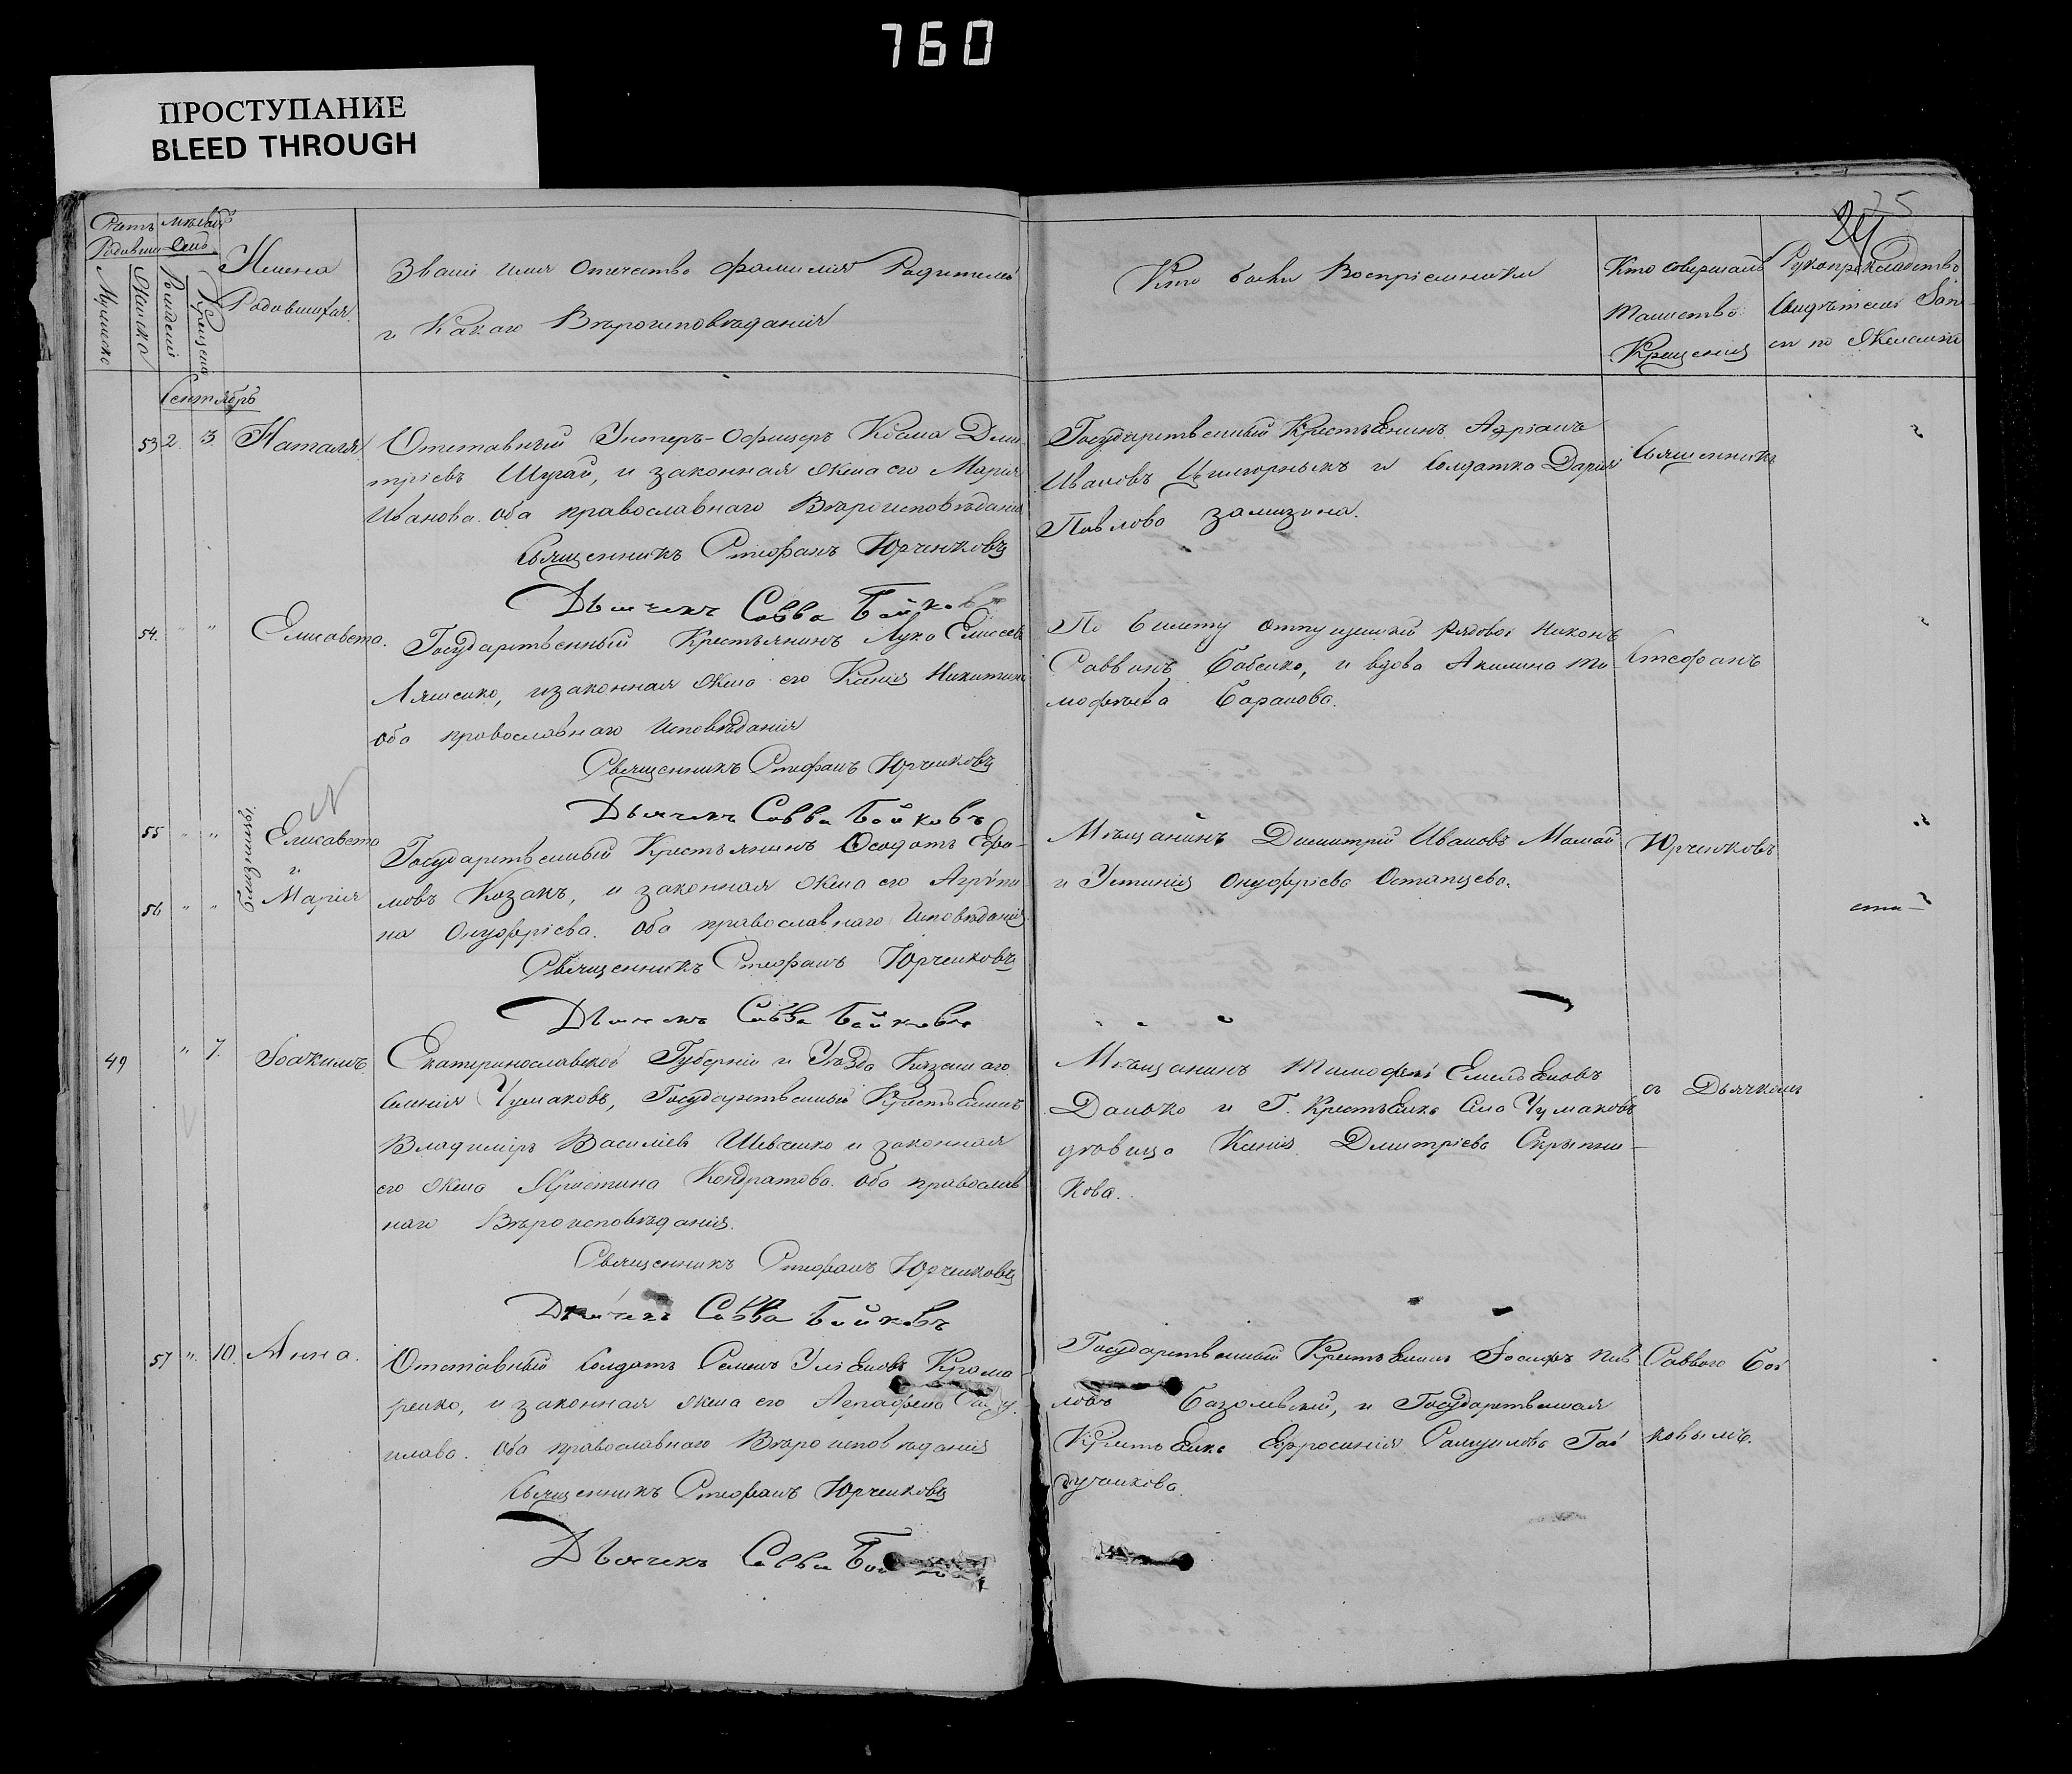 760
ПРОСТУПАНИЕ
BLEED THROUGH
Счетъ
Родивши
Мужеска
Женска
Мѣсяцъ
День
Рожденія
Крещенія
Имена
Родившихся
Званіе имя Отечество Фамилія Родителей
и Какаго Вѣроисповѣданія
Сентябрь
53 2 3 Наталія
Отставный Унтеръ-Офицеръ Козма Дми-
тріевъ Шугай, и законная жена его Марія
Иванова. оба православнаго Вѣроисповѣданія
Священникъ Стефанъ Юрченковъ
Дьячекъ Савва Бойковъ
54. " " Елисавета.
Государственный Крестьянинъ Лука Елисеевъ
Ляшенко, и законная жена его Ксенія Никитина
оба православнаго Исповѣданія
Священникъ Стефанъ Юрченковъ
Дьячекъ Савва Бойковъ
55 " " Елисавета
и
56 " " Марія
Государственный Крестьянинъ Феодотъ Ефи-
мовъ Козакъ, и законная жена его Агрипи
на Онуфріева. Оба православнаго Исповѣданія
Священникъ Стефанъ Юрченковъ
Дьячекъ Савва Бойковъ
49 " 7. Іоакимъ
Екатеринославской Губерніи и Уѣзда Казеннаго
селенія Чумаковъ, Государственный Крестьянинъ
Владимиръ Василіевъ Шевченко и законная
его жена Христина Кондратова. Оба православ
наго Вѣроисповѣданія.
Священникъ Стефанъ Юрченковъ
Дьячекъ Савва Бойковъ
57 " 10. Анна.
Отставный Солдатъ Семенъ Ульяновъ Крама
ренко, и законная жена его Аграфена
илова. Оба православнаго Вѣроисповѣданія
Священникъ Стефанъ Юрченковъ
Дьячекъ Савва
24
75
Кто были Воспріемники
Кто совершалъ
Таинство
Крещенія
Рукоприкладство
Свидѣтелей Запи
си по Желанію
Государственный Крестьянинъ Адріанъ
Ивановъ и Солдатка Дарія
Павлова
Священникъ
По билету отпущенный рядовой Никонъ
Саввинъ Бабенко, и вдова Акилина Ти
мофѣева Баранова.
Стефанъ
Мѣщанинъ Димитрій Ивановъ Мамай
и Устинія Онуфріева Остапцева.
Юрченковъ
Мѣщанинъ Тимофей Емельяновъ
Данько и Г. Крестьянка Села Чумаковъ
дѣвица Ксенія Дмитріева Скрыпни-
кова.
съ Дьячкомъ
Государственный Крестьянинъ Іосифъ Пав
ловъ и Государственная
Крестьянка Ефросинія Самуилова Гай
дучкова.
Саввою Бой
ковымъ.